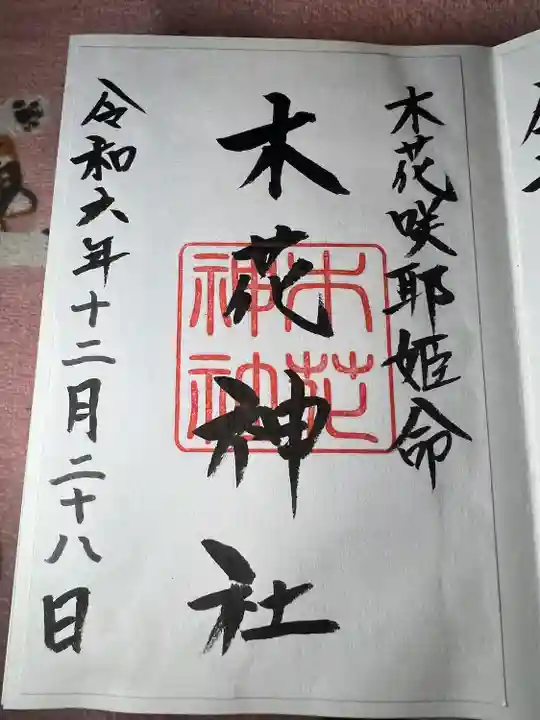 木花咲耶姫命
木花神社
木花
神社
令和六年十二月二十八日